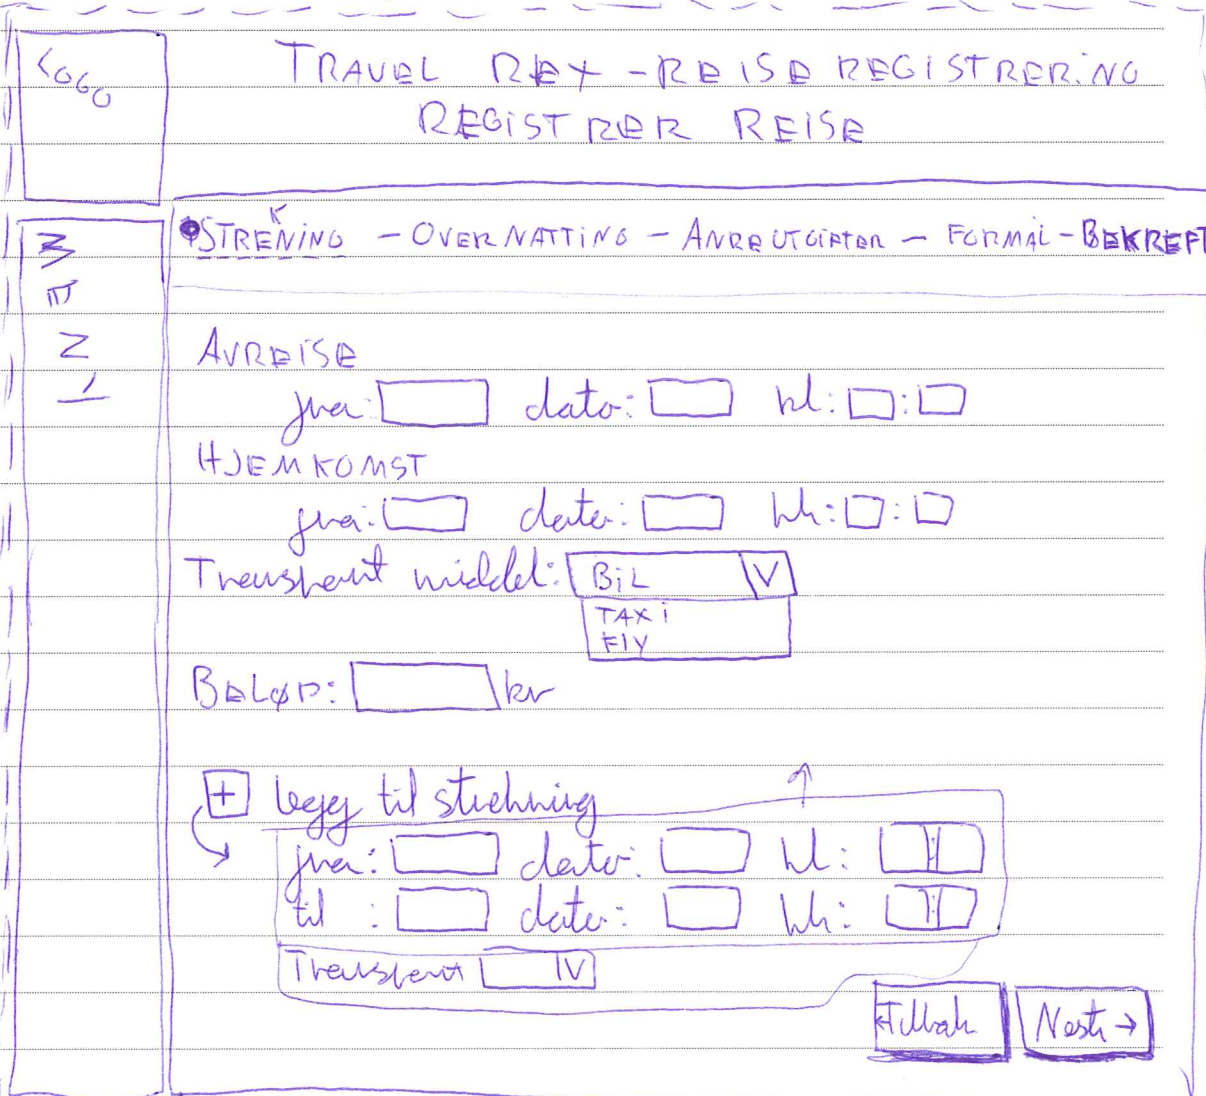 LOGO
TRAVEL REX - REISEREGISTRERING
REGISTRER REISE
MENY
STREKNING - OVERNATTING - ANDRE UTGIFTER - FORMÅL - BEKREFT
AVREISE
fra: dato: kl: :
HJEMKOMST
fra: dato: kl: :
Transport middel: BIL V
TAXI
FLY
BELØP: kr
+ legg til strekning
fra: dato: kl: :
til : dato: kl: :
Transport V
←Tilbak Neste →